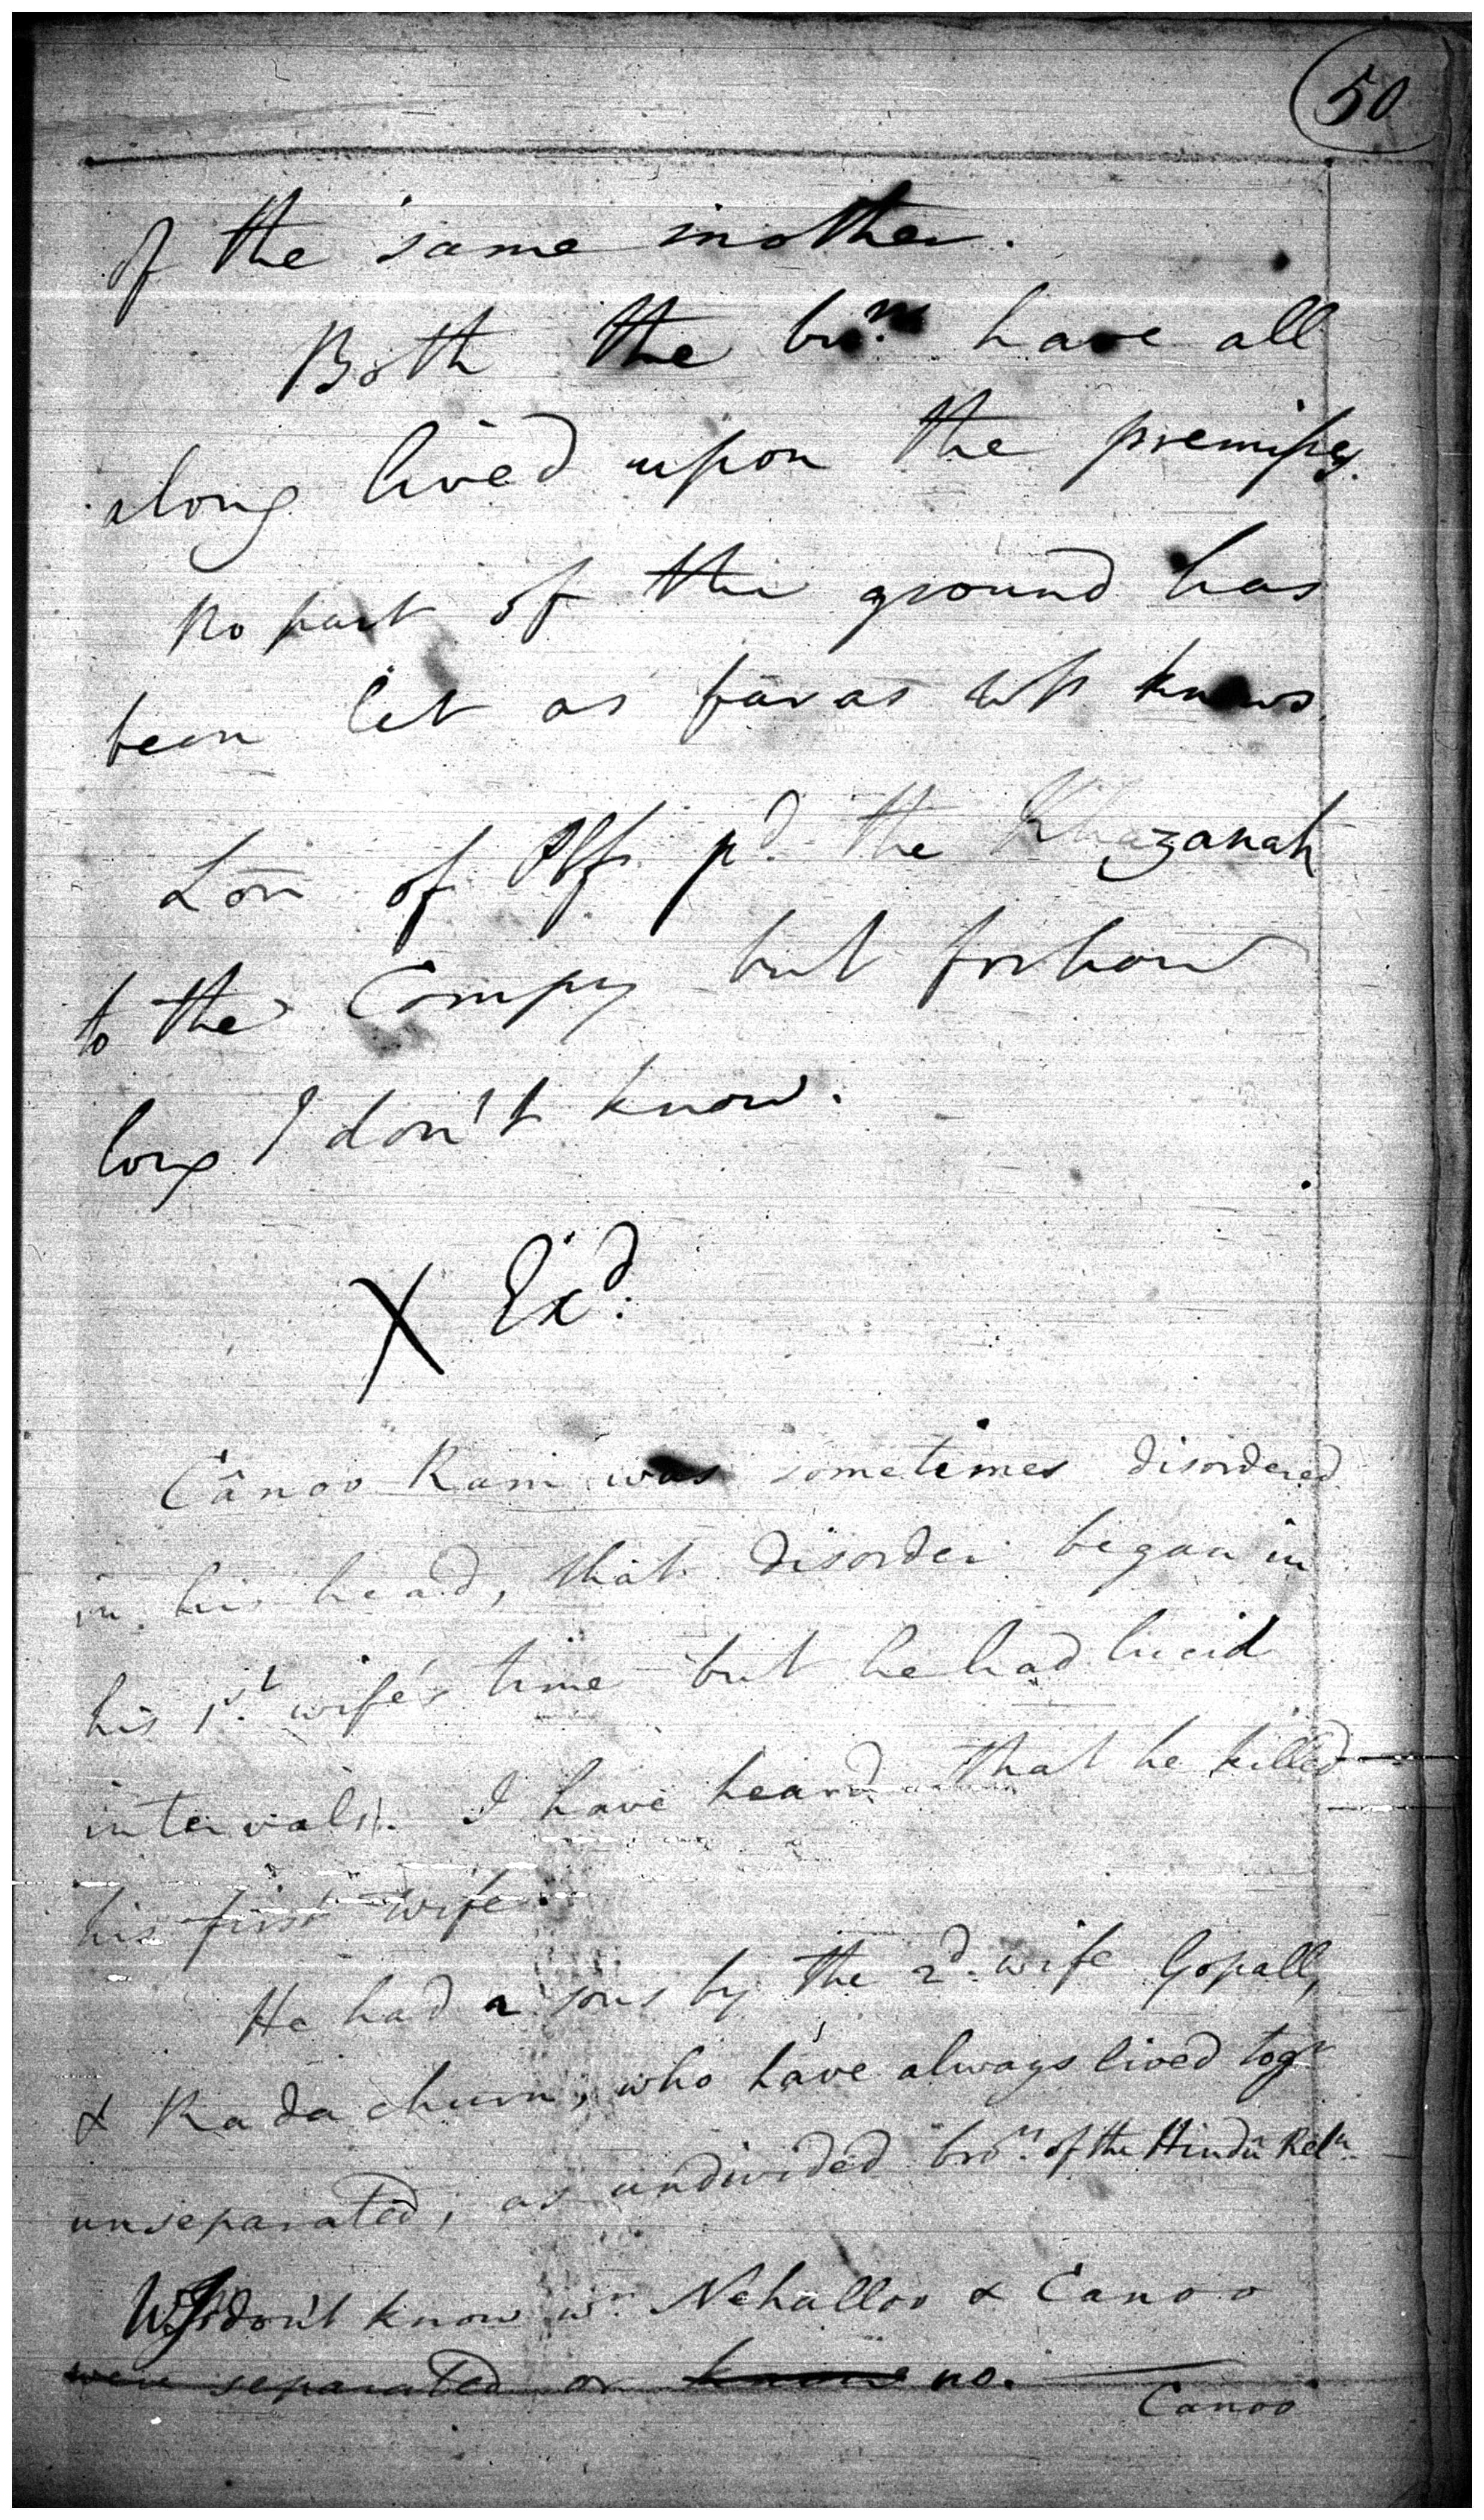 50
of the same mother.
Both the bro.rs have all
along lived upon the premises.
No part of the ground has
been let as far as Wss knows
of Plfs pd. the Khazanah
to the Compy but for how
long I don't know.
X Exd.
Cânoo Ram was sometimes disordered
in his head, that disorder began in
his 1st. wife's time but he had lucid
intervals. I have heard that he killed
his first wife.
He had 2 sons by the 2d. wife Gopall,
& Rada churn, who have always lived togr
unseparated, as undivided bro.rs of the Hindu Reln.
don't know wr. Nehalloo & Canoo
were separated or know no.
Canoo